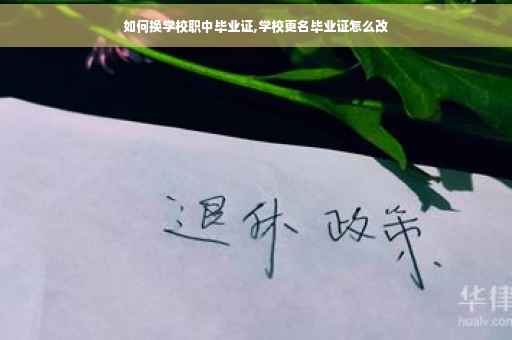 如何换学校职中毕业证,学校更名毕业证怎么改
退休 政策
华律
hualv.com